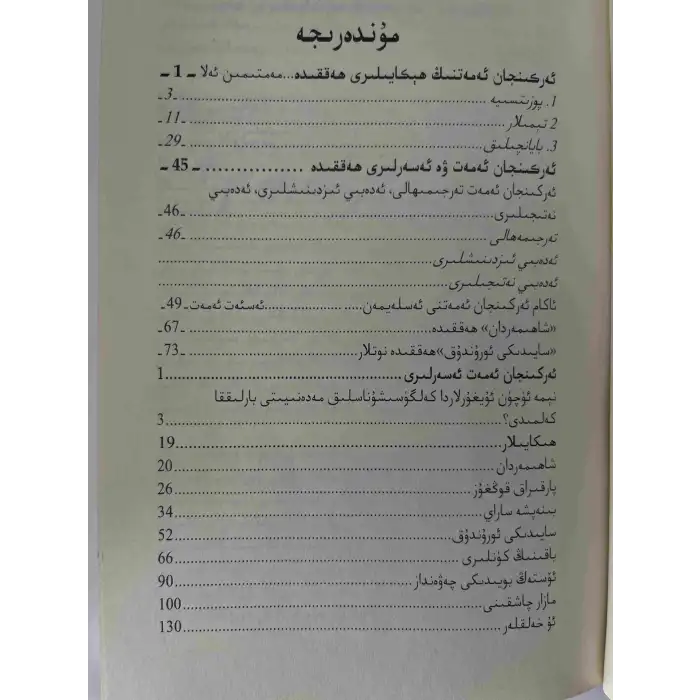 مۇندەرىجە
ئەركىنجان ئەمەتنىڭ ھېكايىلىرى ھەققىدە...مەمتىمىن ئەلا ـ 1 ـ
1. پوزىتسىيە ........ـ3ـ
2 تېمىلار ........ـ11ـ
3. بايانچىلىق ........ـ29ـ
ئەركىنجان ئەمەت ۋە ئەسەرلىرى ھەققىدە ........ ـ 45 ـ
ئەركىنجان ئەمەت تەرجىمىھالى، ئەدەبىي ئىزدىنىشلىرى، ئەدەبىي
نەتىجىلىرى........ـ46ـ
تەرجىمەھالى ........ـ46ـ
ئەدەبىي ئىزدىنىشلىرى ........
ئەدەبىي نەتىجىلىرى........
ئاكام ئەركىنجان ئەمەتنى ئەسلەيمەن........ئەسئەت ئەمەت.ـ49ـ
«شاھىمەردان» ھەققىدە........ـ67ـ
«سايىدىكى ئورۇندۇق»ھەققىدە نوتلار ........ـ73ـ
ئەركىنجان ئەمەت ئەسەرلىرى........1
نېمە ئۈچۈن ئۇيغۇرلاردا كەلگۈسىشۇناسلىق مەدەنىيىتى بارلىققا
كەلمىدى؟........3
ھىكايىلار........19
شاھىمەردان........20
پارقىراق قوڭغۇز........26
بىنەپشە ساراي........34
سايىدىكى ئورۇندۇق........52
باقىنىڭ كۈنلىرى........66
ئۆستەڭ بويىدىكى چەۋەنداز........90
مازار چاشقىنى........100
ئۇ خەلقلەر........130